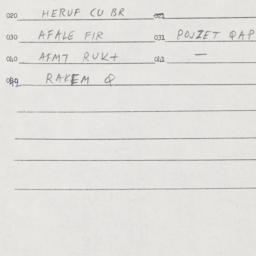 020 HERUF CU BR
030 AFALE FIR 031 POUZET QAP
040 AFMT RUK+ 041 —
RAKEM Q